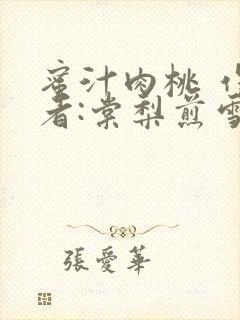 蜜汁肉桃 作
者:棠梨煎雪
張愛華